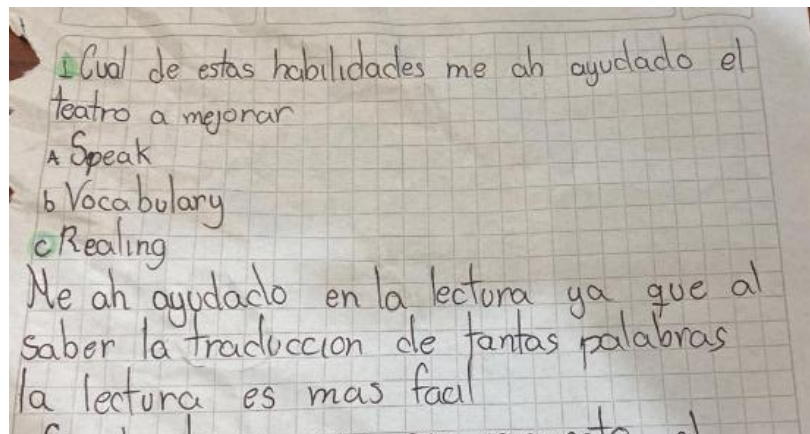 1 Cual de estas habilidades me ah ayudado el
teatro a mejorar
A Speak
b Vocabulary
c Realing
Me ah ayudado en la lectura ya que al
saber la traduccion de tantas palabras
la lectura es mas facil